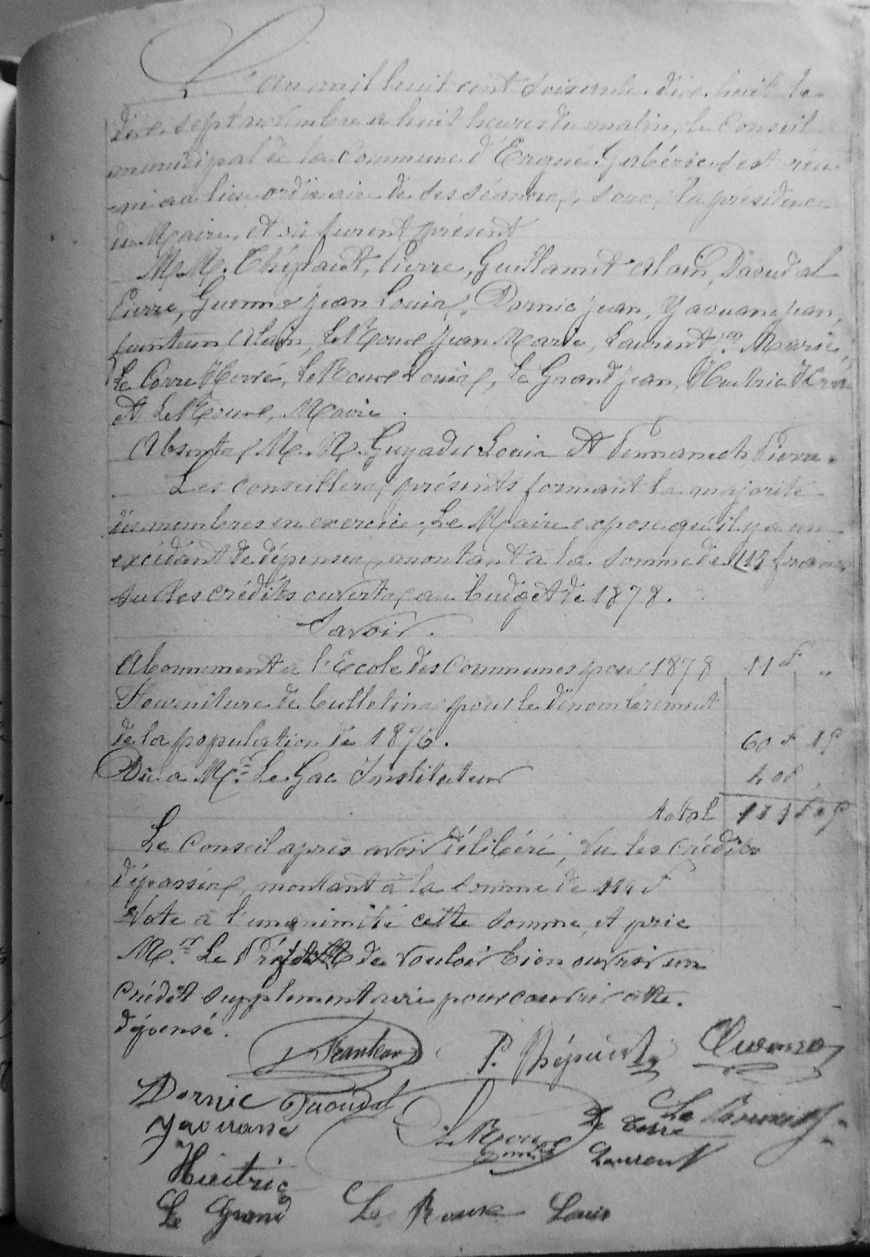 L'an mil huit cent soixante dix huit le
dix sept novembre a huit heures du matin, le Conseil
municipal de la Commune d'Ergué Gabéric s'est réu-
ni au lieu ordinaire de ses séances, sous la présidence
du Maire, et où furent présent
M.M. Thépaut, Pierre, Guillamet Alain, Daoudal
Pierre, Guenno Jean Louis, Dornic Jean, Yaouanc Jean,
Alain, Le Roux Jean Marie, Laurent Jn Marie,
Le Corre Hervé, Le Roux Louis, Le Grand Jean, Huitric Hervé
et Le Roux, Maire.
Absents, M.M. Guyader Louis et Pierre.
Les conseillers présents formant la majorité
des membres en exercice, Le Maire expose qu'il y a un
excédant de dépenses, montant à la somme de francs
sur les crédits ouverts, au budget de 1878.
Savoir.
Abonnement à l'Ecole des Communes pour 1878 11 f "
Fourniture de bulletins pour le dénombrement
de la population de 1876. 60 f
Dû à Mr. Le Gac Instituteur 40 f
total
Le Conseil après avoir délibéré, Vu les crédits
dépassés, montant à la somme de
Vote à l'unanimité cette somme, et prie
Mr. Le Préfet de vouloir bien ouvrir un
crédit supplementaire pour couvrir cette
dépense.
P. Thépaut
Dornic Daoudal
Yaouanc Le Roux Le Corre
Laurent
Huitric
Le Grand Le Roux Louis